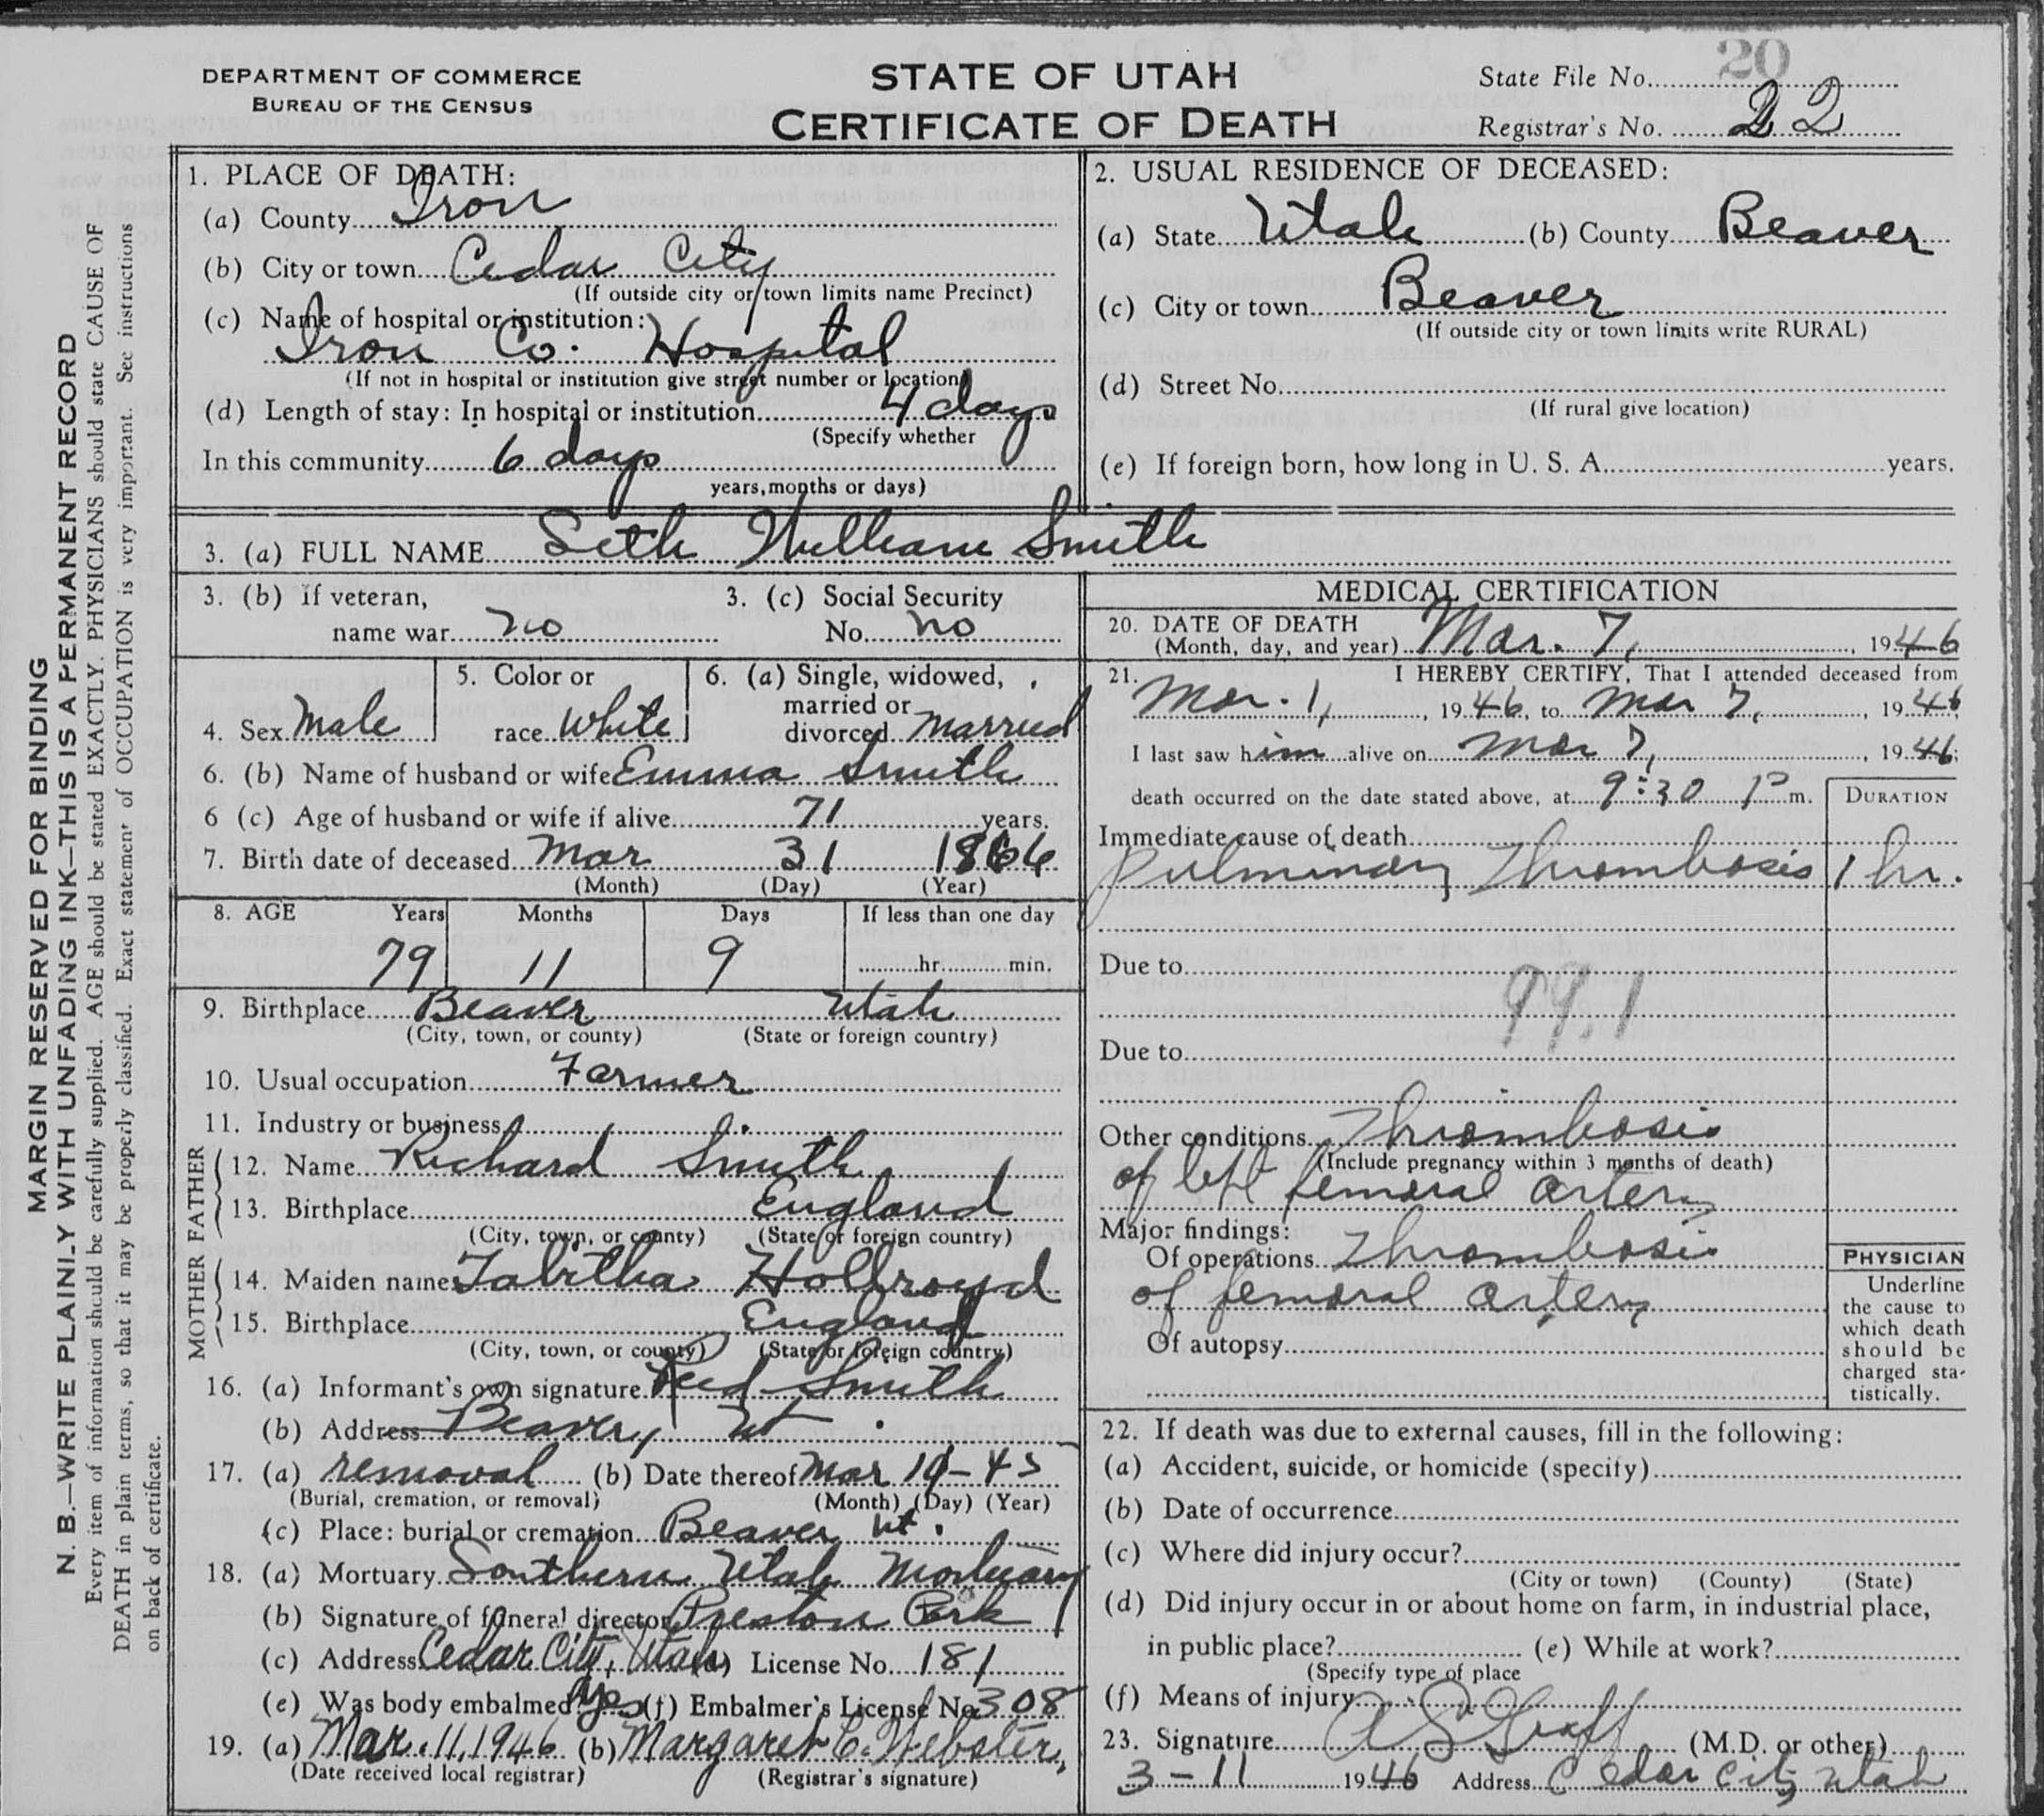 20
DEPARTMENT OF COMMERCE
BUREAU OF THE CENSUS
STATE OF UTAH
CERTIFICATE OF DEATH
State File No.
Registrar's No. 22
MARGIN RESERVED FOR BINDING
N. B.—WRITE PLAINLY WITH UNFADING INK—THIS IS A PERMANENT RECORD
Every item of information should be carefully supplied. AGE should be stated EXACTLY. PHYSICIANS should state CAUSE OF
DEATH in plain terms, so that it may be properly classified. Exact statement of OCCUPATION is very important. See instructions
on back of certificate.
1. PLACE OF DEATH:
(a) County Iron
(b) City or town Cedar City
(If outside city or town limits name Precinct)
(c) Name of hospital or institution:
Iron Co. Hospital
(If not in hospital or institution give street number or location)
(d) Length of stay: In hospital or institution 4 days
(Specify whether
In this community 6 days
years, months or days)
2. USUAL RESIDENCE OF DECEASED:
(a) State Utah (b) County Beaver
(c) City or town Beaver
(If outside city or town limits write RURAL)
(d) Street No.
(If rural give location)
(e) If foreign born, how long in U. S. A. years.
3. (a) FULL NAME Seth William Smith
3. (b) If veteran,
name war no
3. (c) Social Security
No. no
4. Sex Male
5. Color or
race White
6. (a) Single, widowed,
married or
divorced married
6. (b) Name of husband or wife Emma Smith
6 (c) Age of husband or wife if alive 71 years.
7. Birth date of deceased Mar 31 1866
(Month) (Day) (Year)
8. AGE Years Months Days If less than one day
79 11 9 hr. min.
9. Birthplace Beaver Utah
(City, town, or county) (State or foreign country)
10. Usual occupation Farmer
11. Industry or business
FATHER
12. Name Richard Smith
13. Birthplace England
(City, town, or county) (State or foreign country)
MOTHER
14. Maiden name Tabitha Hollroyd
15. Birthplace England
(City, town, or county) (State or foreign country)
16. (a) Informant's own signature Reed Smith
(b) Address Beaver, Ut
17. (a) removal (b) Date thereof Mar
(Burial, cremation, or removal) (Month) (Day) (Year)
(c) Place: burial or cremation Beaver Ut.
18. (a) Mortuary Southern Utah Mortuary
(b) Signature of funeral director Preston Park
(c) Address Cedar City, Utah (d) License No. 181
(e) Was body embalmed? yes (f) Embalmer's License No. 308
19. (a) Mar. 11, 1946 (b) Margaret C. Webster,
(Date received local registrar) (Registrar's signature)
MEDICAL CERTIFICATION
20. DATE OF DEATH
(Month, day, and year) Mar. 7, 1946
21. I HEREBY CERTIFY, That I attended deceased from
Mar. 1, 1946, to Mar 7, 1946
I last saw him alive on Mar 7, 1946;
death occurred on the date stated above, at 9:30 P m.
DURATION
Immediate cause of death
Pulmonary Thrombosis 1 hr.
Due to
99.1
Due to
Other conditions Thrombosis
(Include pregnancy within 3 months of death)
of left femoral artery
Major findings:
Of operations Thrombosis
of femoral artery
Of autopsy
PHYSICIAN
Underline
the cause to
which death
should be
charged sta-
tistically.
22. If death was due to external causes, fill in the following:
(a) Accident, suicide, or homicide (specify)
(b) Date of occurrence
(c) Where did injury occur?
(City or town) (County) (State)
(d) Did injury occur in or about home on farm, in industrial place,
in public place? (e) While at work?
(Specify type of place
(f) Means of injury
23. Signature A S Graff (M.D. or other)
3-11 1946 Address Cedar City Utah